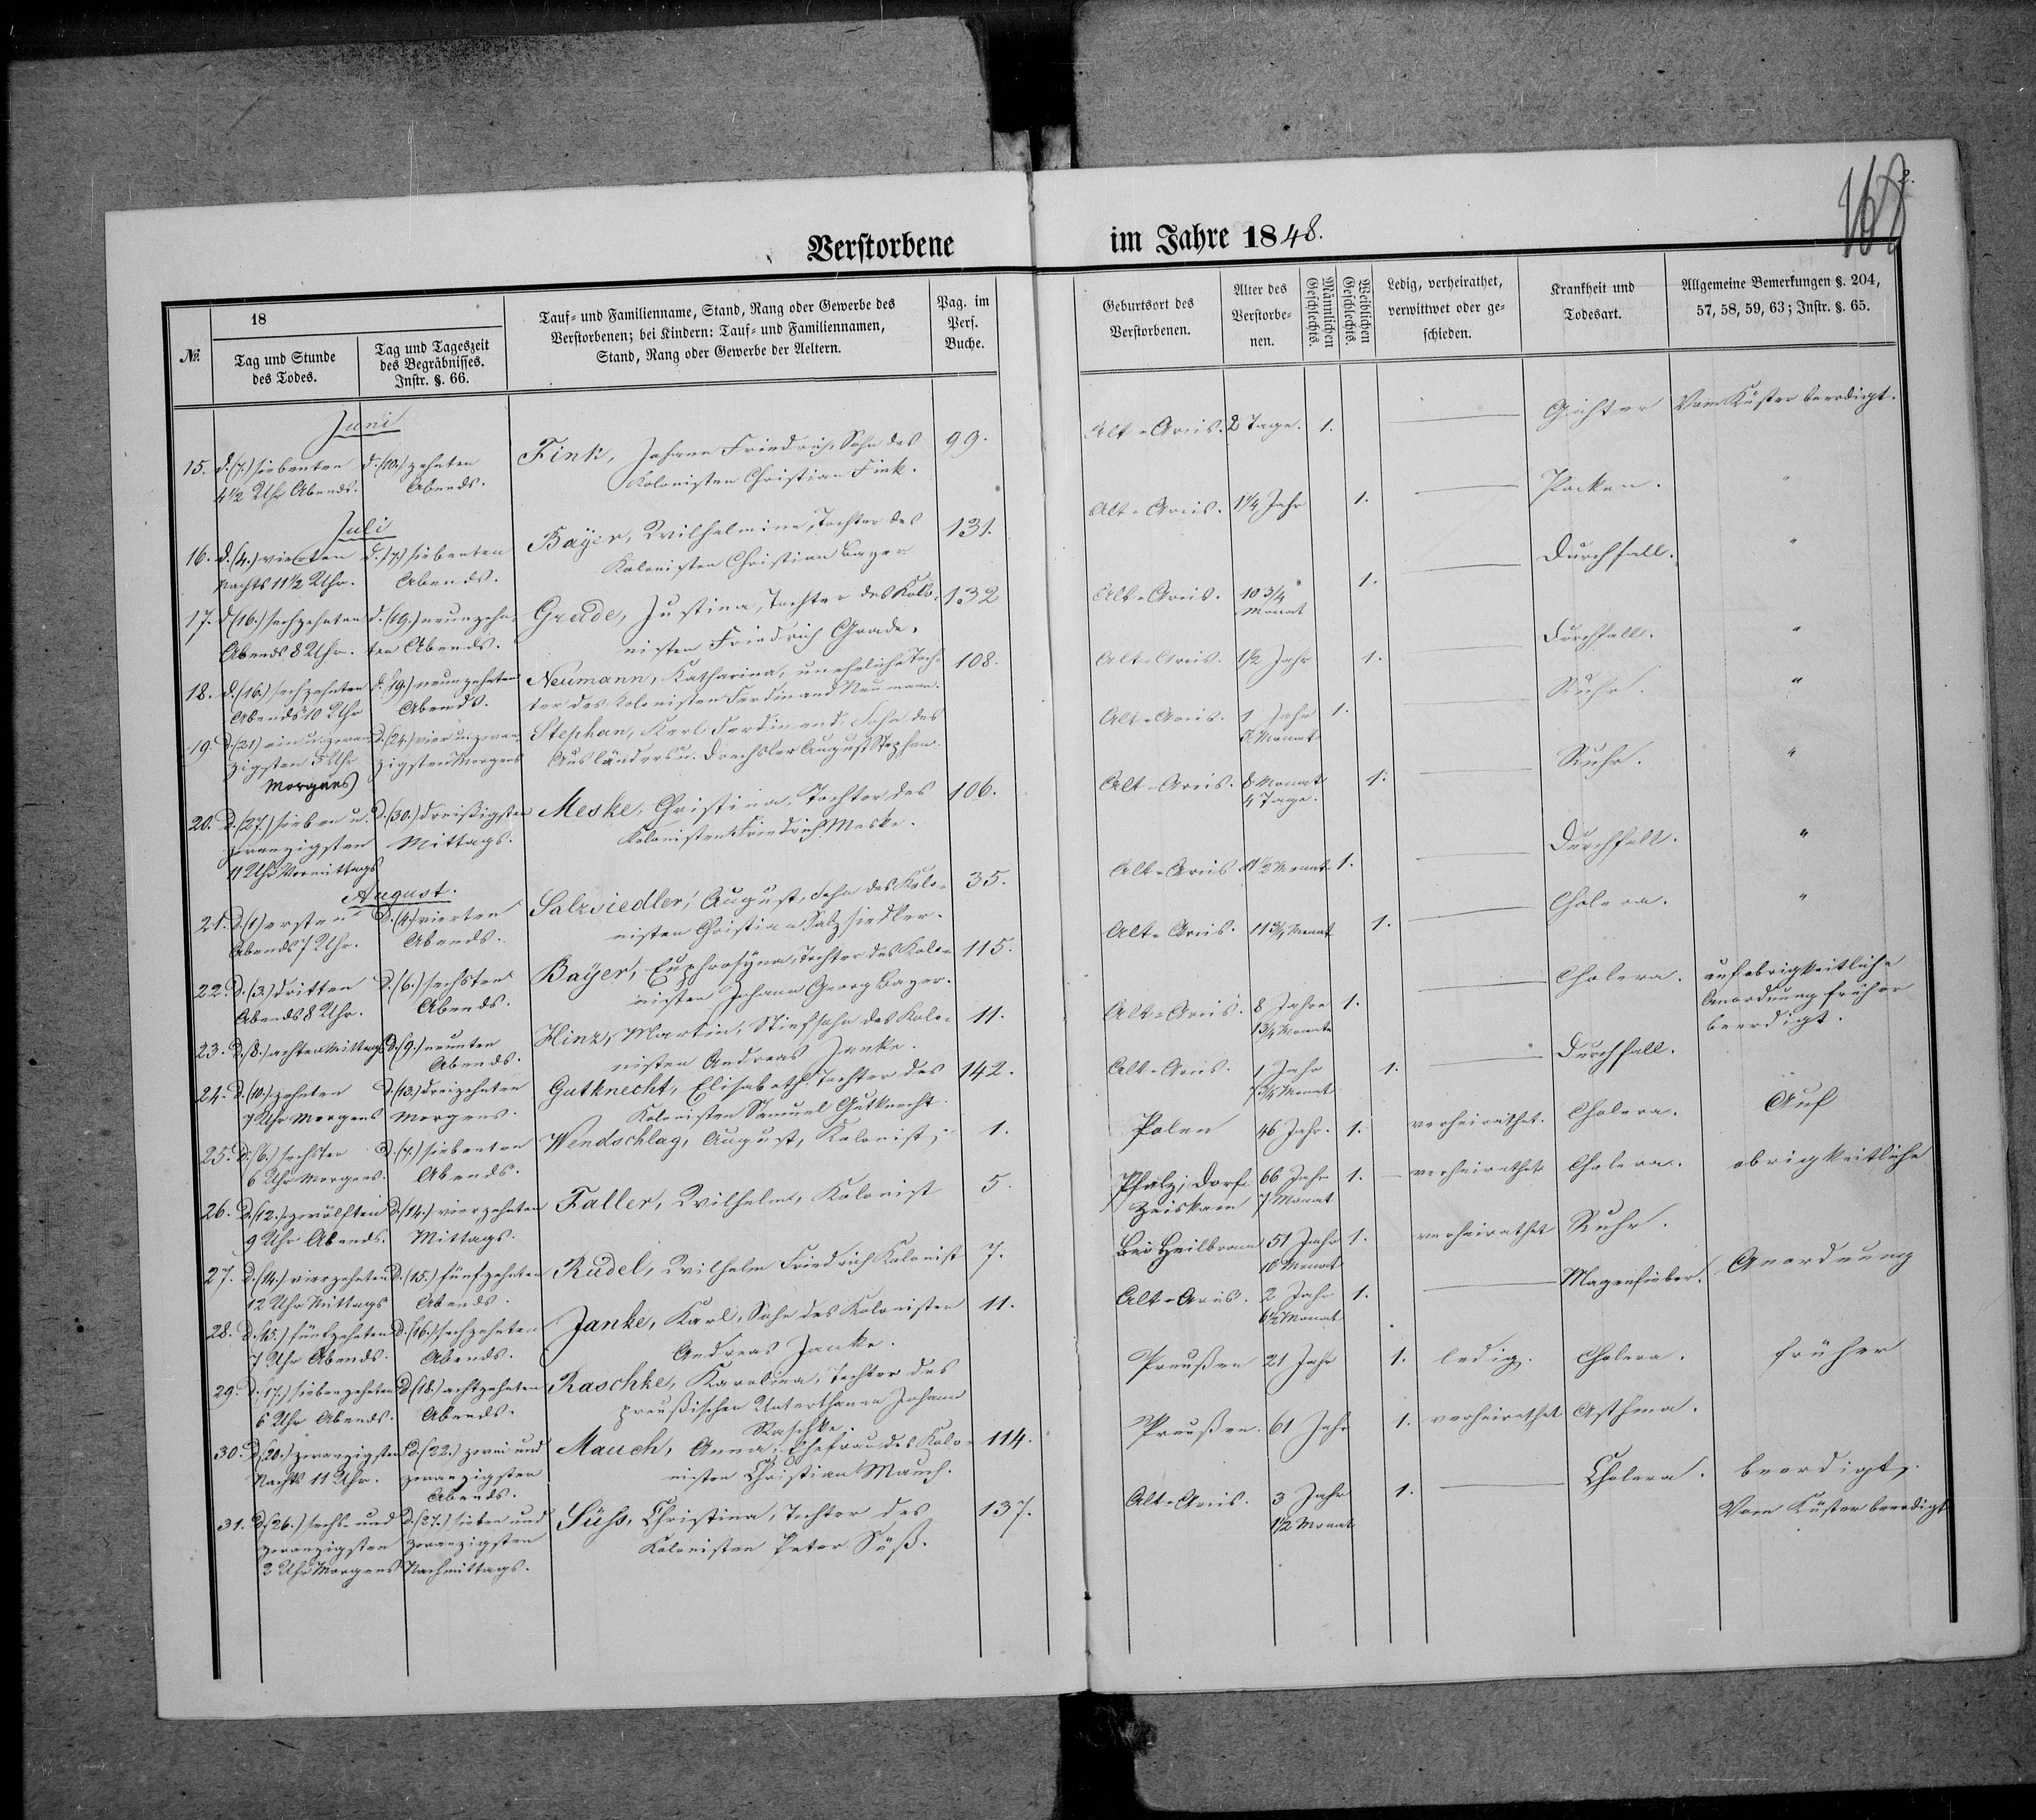 168
2.
Verstorbene im Jahre 1848.
№.
18
Tag und Stunde
des Todes.
Tag und Tageszeit
des Begräbnisses.
Instr. §. 66.
Tauf- und Familienname, Stand, Rang oder Gewerbe des
Verstorbenen; bei Kindern: Tauf- und Familiennamen,
Stand, Rang oder Gewerbe der Aeltern.
Pag. im
Pers.
Buche.
Geburtsort des
Verstorbenen.
Alter des
Verstorbe-
nen.
Männlichen
Geschlechts.
Weiblichen
Geschlechts.
Ledig, verheirathet,
verwittwet oder ge-
schieden.
Krankheit und
Todesart.
Allgemeine Bemerkungen §. 204,
57, 58, 59, 63; Instr. §. 65.
Juni
15. d. (7.) siebenten d. (10.) zehnten Fink, Johann Friedrich, Sohn des 99. Alt-Arcis. 2 Tage. 1. Gichter Vom Küster beerdigt.
4 1/2 Uhr Abends. Abends. Kolonisten Christian Fink.
Juli
16. d. (4.) vierten d. (7.) siebenten Bayer, Wilhelmine, Tochter des 131. Alt-Arcis. 1 1/4 Jahr 1. Pocken. "
Nachts 11 1/2 Uhr. Abends. Kolonisten Christian Bayer
17. d. (16.) sechzehnten d. (19.) neunzehn- Grade, Justina, Tochter des Kolo- 132 Alt-Arcis. 10 3/4 1. Durchfall. "
Abends 8 Uhr. ten Abends. nisten Friedrich Grade. Monat
18. d. (16.) sechzehnten d. (19.) neunzehnten Neumann, Katharina, uneheliche Toch- 108. Alt-Arcis. 1/2 Jahr 1. Durchfall. "
Abends 10 Uhr Abends. ter des Kolonisten Ferdinand Neumann.
19. D. (21) ein u. zwan- D. (24.) vier u. zwan- Stephan, Karl Ferdinand, Sohn des Alt-Arcis. 1 Jahr 1. Ruhr. "
zigsten 5 Uhr zigsten Morgens Ausländers u. Drechsler August Stephan. Monat
Morgens)
20. D. (27.) sieben u. D. (30.) dreißigsten Meske, Christina, Tochter des 106. Alt-Arcis. 8 Monat 1. Ruhr. "
zwanzigsten Mittags. Kolonisten Friedrich Meske. 4 Tage.
11 Uhr Vormittags
August.
21. D. (1) ersten D. (4.) vierten Salzsiedler, August, Sohn des Kolo- 35. Alt-Arcis 11 1/2 Monat 1. Durchfall. "
Abends 7 Uhr. Abends. nisten Christian Salzsiedler.
22. D. (3.) dritten D. (6.) sechsten Bayer, Euphrosyna, Tochter des Kolo- 115. Alt-Arcis. 11 3/4 Monat 1. Cholera. "
Abends 8 Uhr. Abends. nisten Johann Georg Bayer.
23. D. (8.) achten Mittags D. (9.) neunten Hinz, Martin, Stiefsohn des Kolo- 11. Alt-Arcis. 8 Jahre 1. Cholera. auf obrigkeitliche
Abends. nisten Andreas Janke. 1 3/4 Monate Anordnung früher
beerdigt.
24. D. (10.) zehnten D. (13.) dreizehnten Gutknecht, Elisabeth, Tochter des 142. Alt-Arcis. 1 Jahr 1. Durchfall.
7 Uhr Morgens Morgens. Kolonisten Samuel Gutknecht. 7 3/4 Monat
25. D. (6.) sechsten D. (7.) siebenten Wendschlag, August, Kolonist; 1. Polen 46 Jahr. 1. verheirathet. Cholera. Auf
6 Uhr Morgens. Abends.
26. D. (12.) zwölften D. (14.) vierzehnten Faller, Wilhelm, Kolonist 5. Pfalz; Dorf 66 Jahr 1. verheirathet Cholera. obrigkeitliche
9 Uhr Abends. Mittags. Zeiskam 7 Monat
27. D. (14.) vierzehnten D. (15.) fünfzehnten Rudel, Wilhelm Friedrich Kolonist 7. Bei Heilbronn 51 Jahr 1. verheirathet Ruhr. Anordnung
12 Uhr Mittags Abends. 10 Monat
28. D. (15.) fünfzehnten D. (16.) sechzehnten Janke, Karl, Sohn des Kolonisten 11. Alt-Arcis. 2 Jahr 1. Magenfieber.
7 Uhr Abends. Abends. Andreas Janke. 6 1/2 Monat
29. D. (17.) siebenzehnten D. (18.) achtzehnten Raschke, Karolina, Tochter des Preußen 21 Jahr 1. ledig. Cholera. früher
6 Uhr Abends. Abends. preußischen Unterthanen Johann
Raschke.
30. D. (20.) zwanzigsten D. (22.) zwei und Mauch, Anna, Ehefrau des Kolo- 114. Preußen. 61 Jahr 1. verheirathet Asthma.
Nachts 11 Uhr. zwanzigsten nisten Christian Mauch. beerdigt.
Abends.
31. D. (26.) sechs und D. (27.) sieben und Süss, Christina, Tochter des 137. Alt-Arcis. 3 Jahr 1. Cholera. Vom Küster beerdigt
zwanzigsten zwanzigsten Kolonisten Peter Süß. 1 1/2 Monat
2 Uhr Morgens Nachmittags.